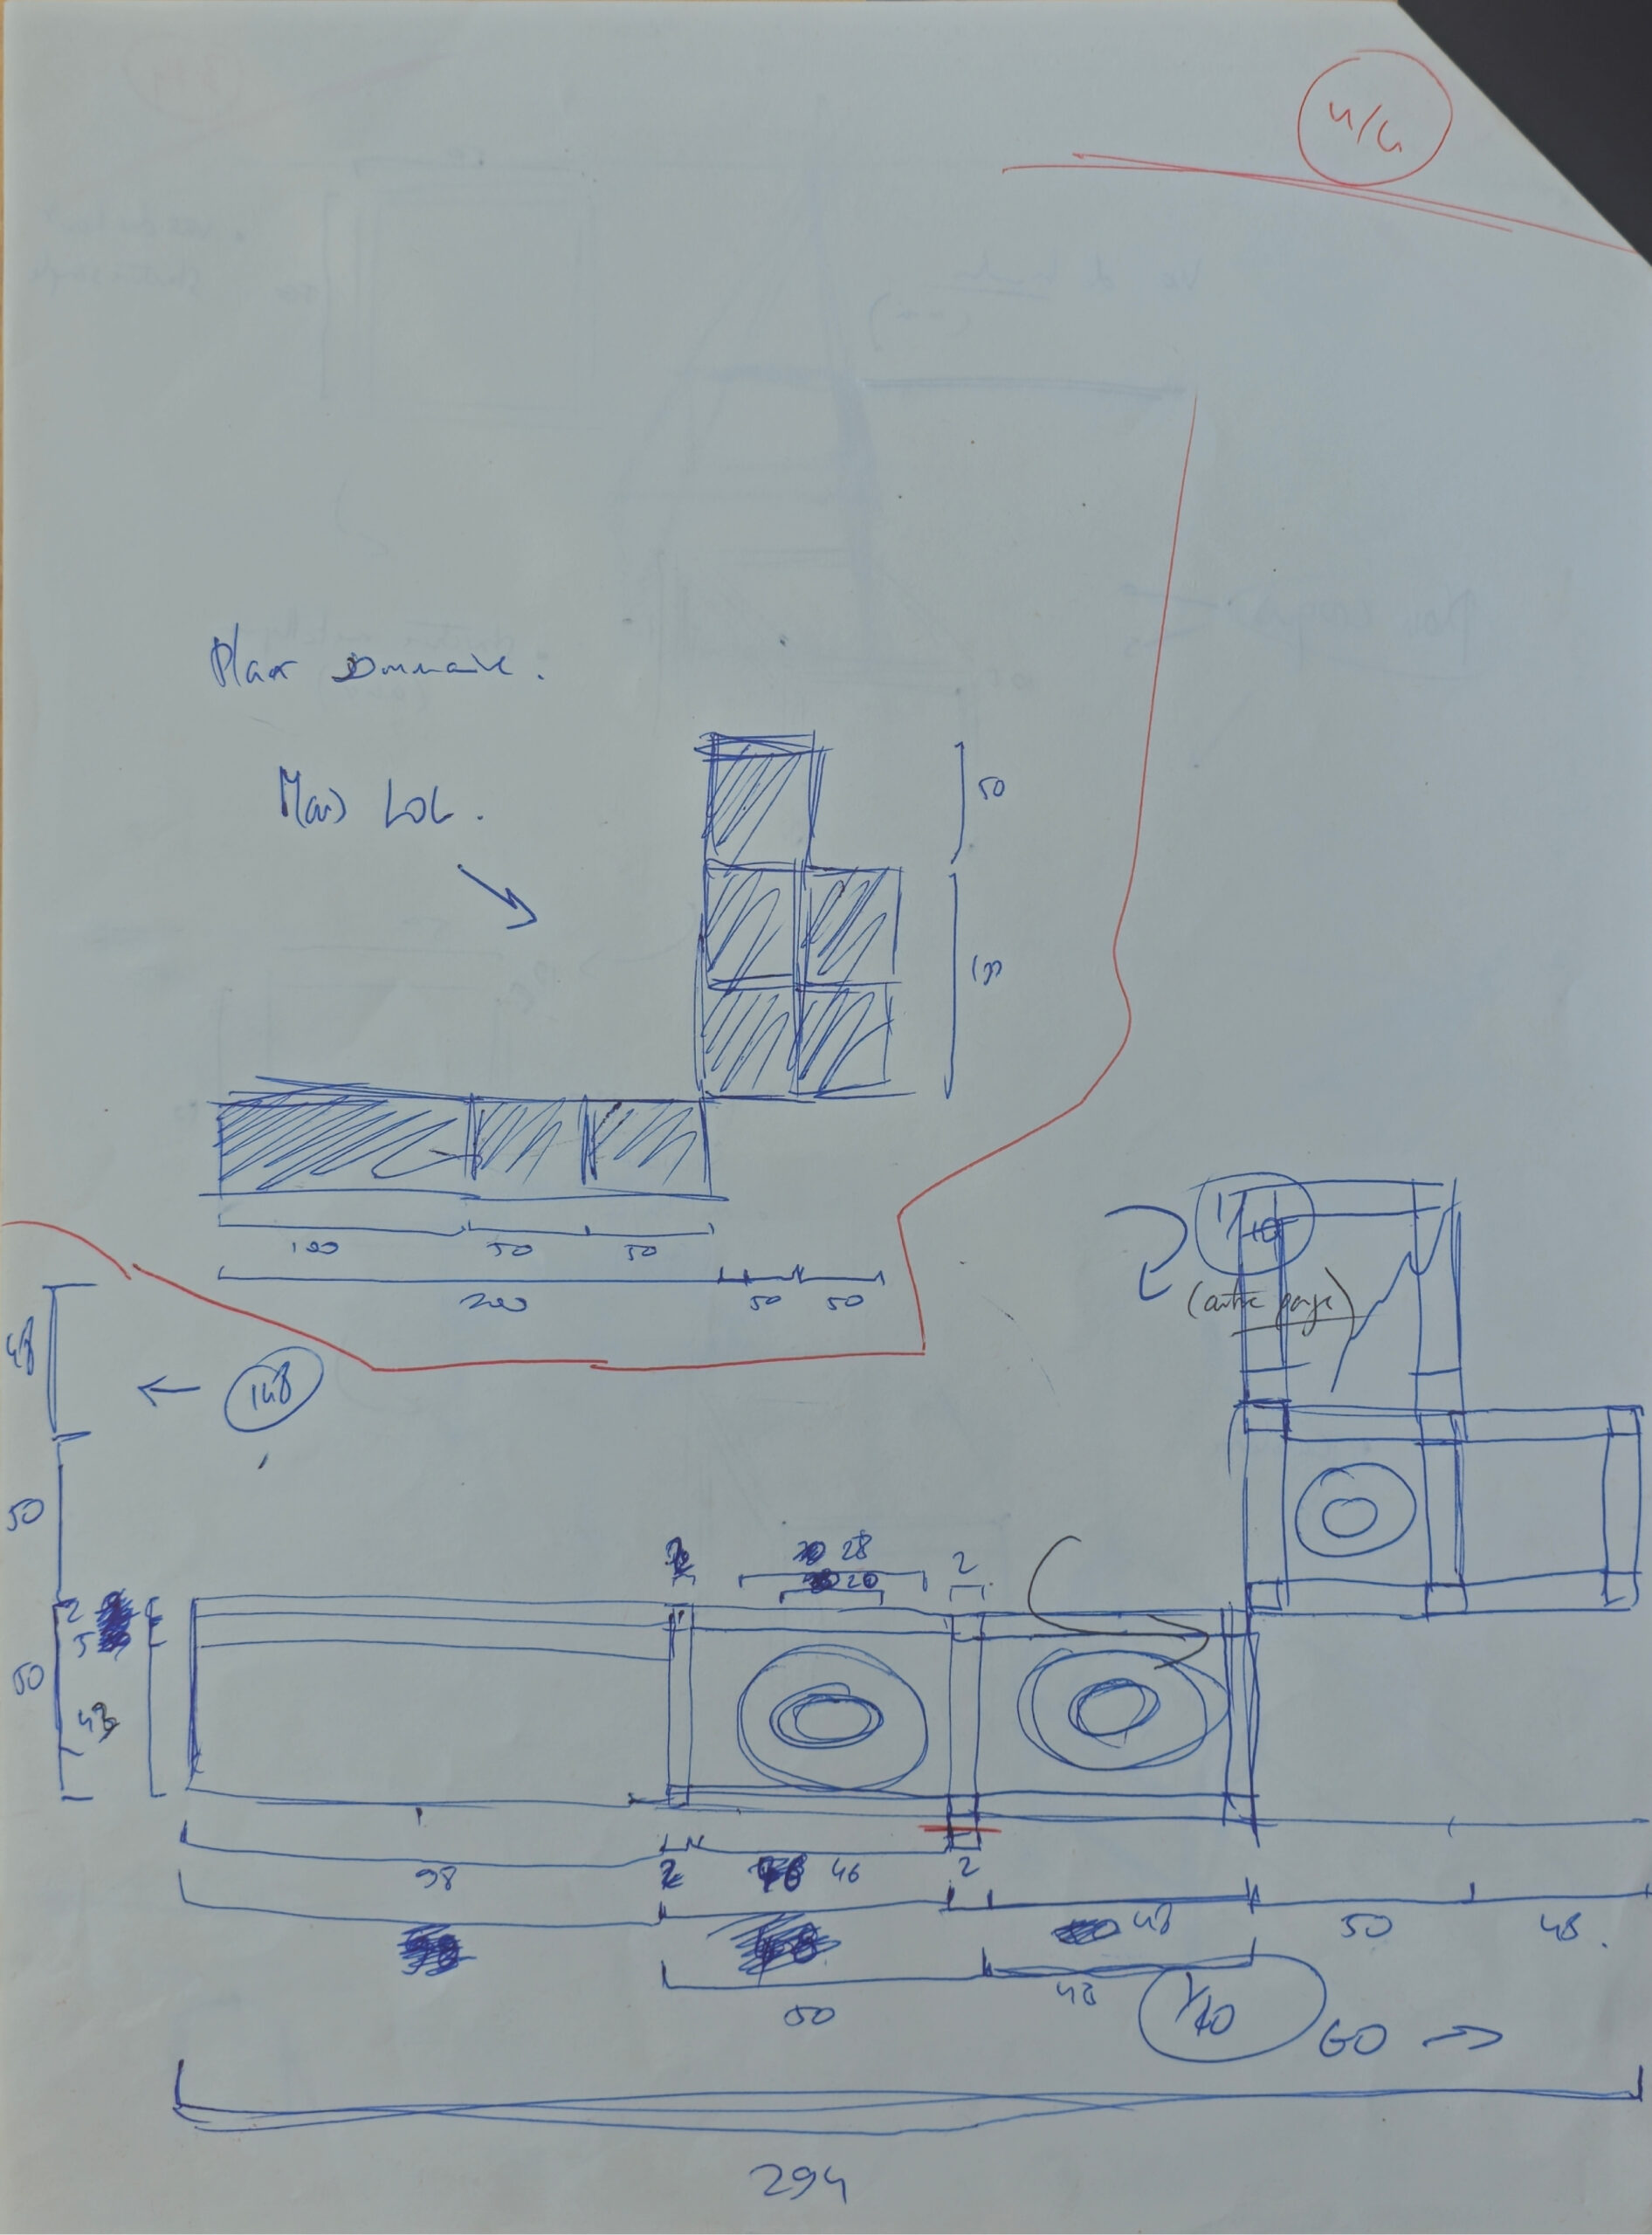 4/4
Plan
Mais LOL.
50
100
100
50
50
200
50
50
1/10
(autre page)
48
148
50
28
20
2
2
5
50
43
98
2
46
2
48
50
48.
50
48
1/10
GO →
294